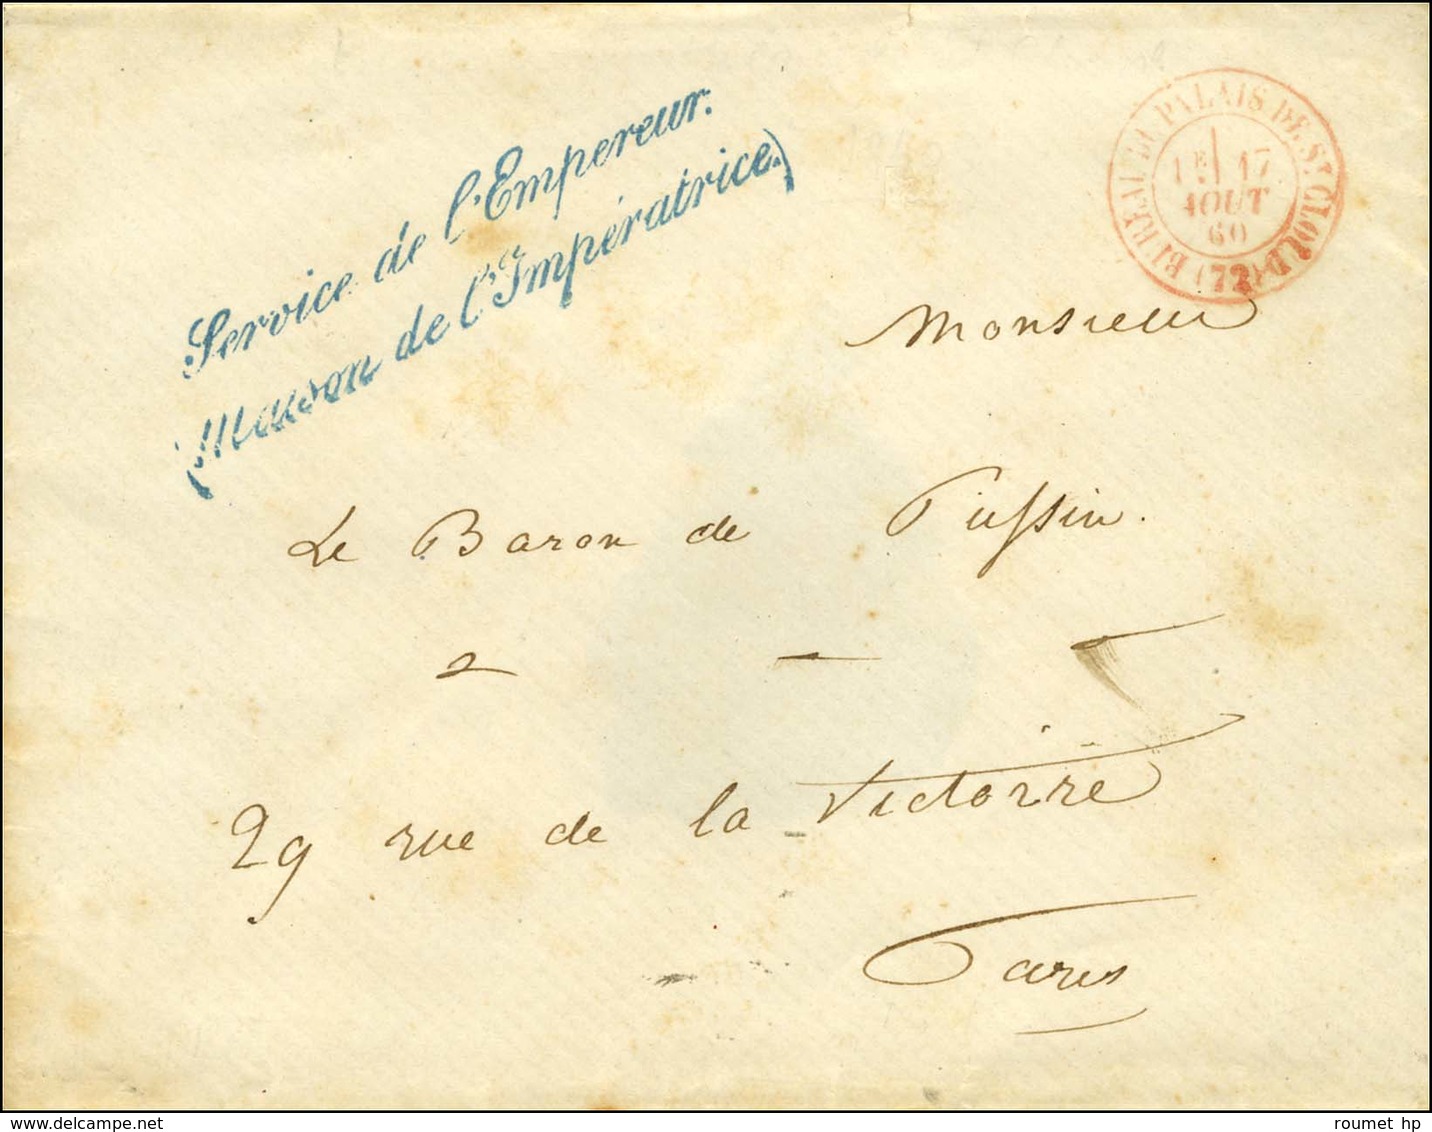 Service de l'Empereur.
(Maison de l'Impératrice.)
BUREAU DU PALAIS DE St CLOUD (72)
1E 17
AOUT
60
Monsieur
Le Baron de
29 rue de la Victoire
Paris
roumet hp